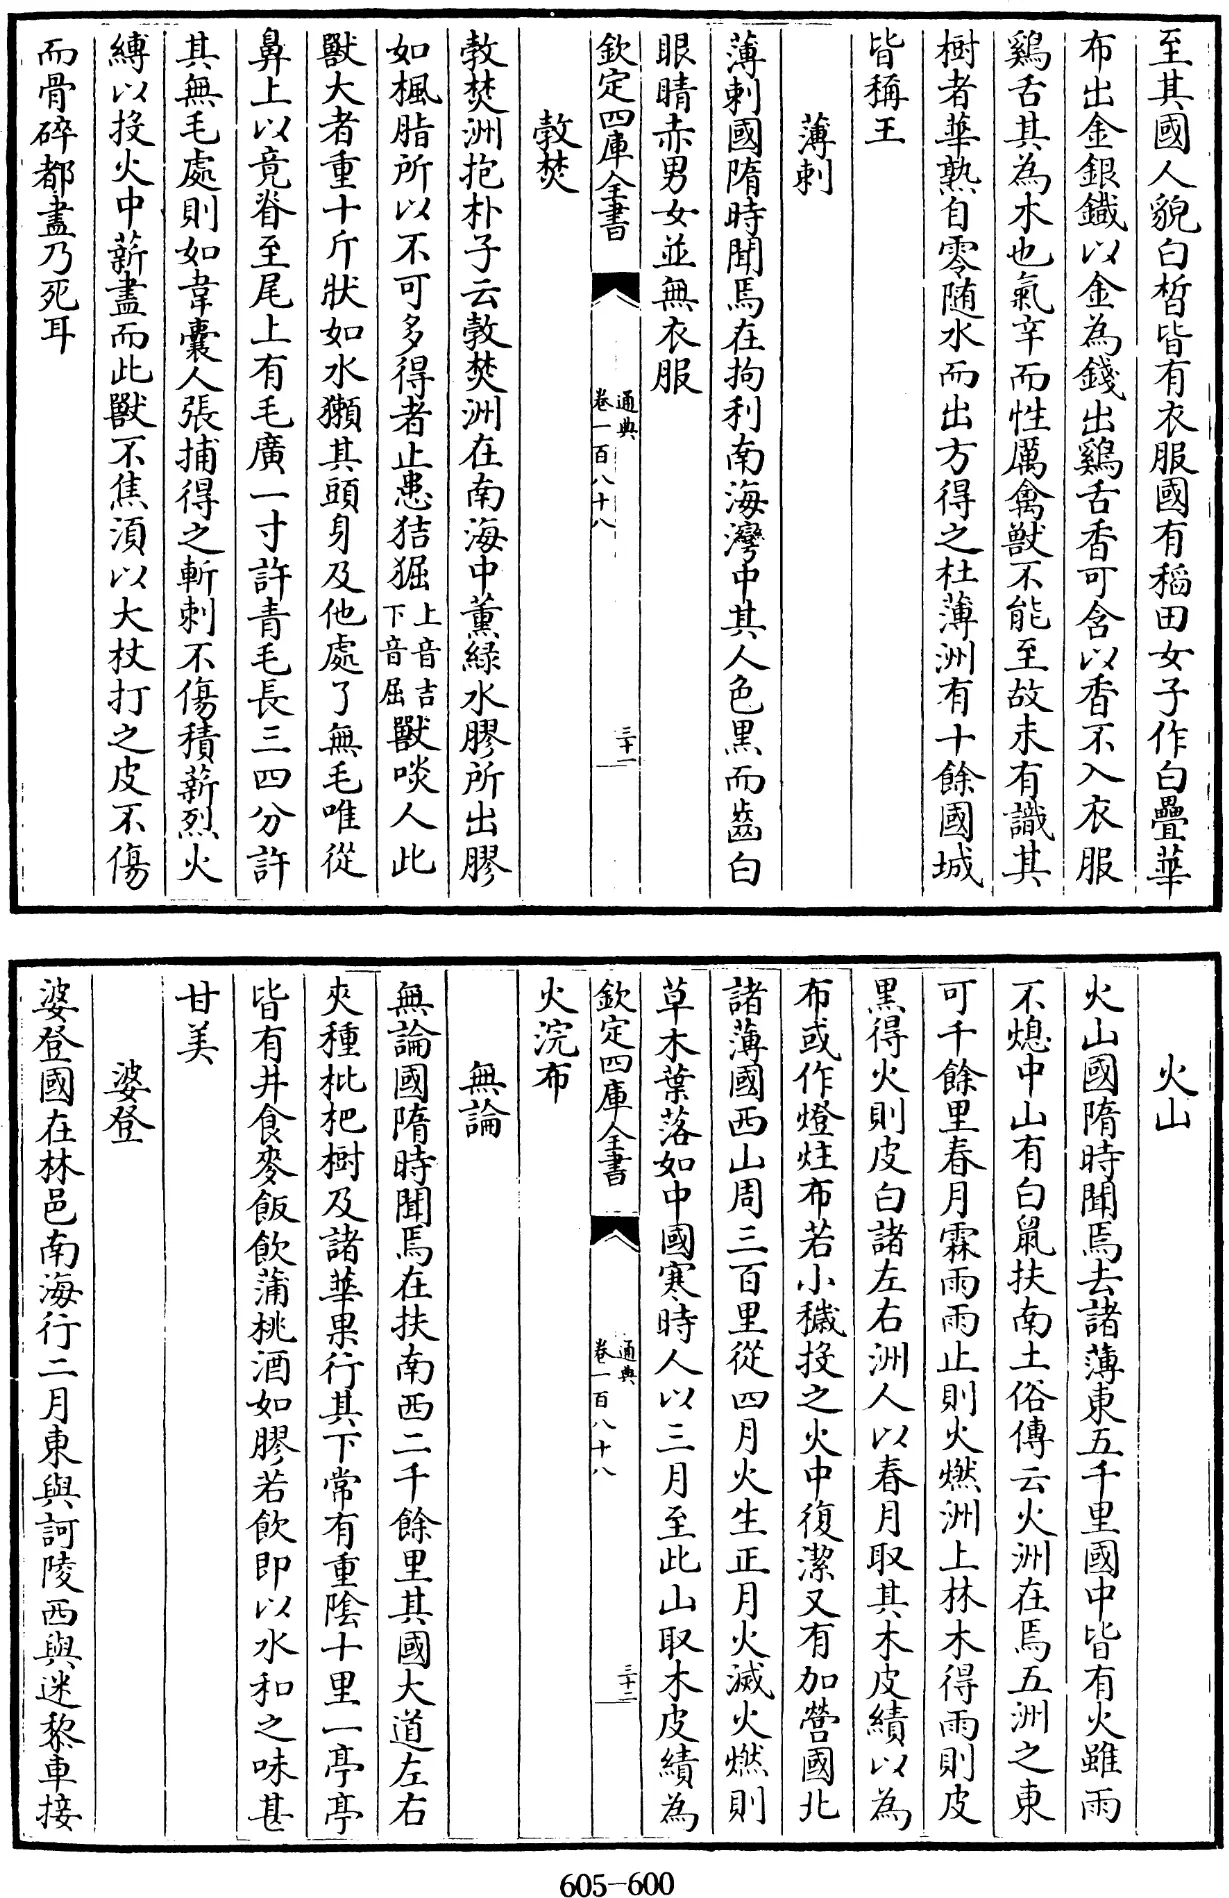 至其國人貌白皙皆有衣服國有稻田女子作白疊華
布出金銀鐵以金為錢出鷄舌香可含以香不入衣服
鷄舌其為木也氣辛而性厲禽獸不能至故未有識其
樹者華熟自零随水而出方得之杜薄洲有十餘國城
皆稱王
薄剌
薄剌國隋時聞焉在拘利南海灣中其人色黒而齒白
眼睛赤男女並無衣服
欽定四庫全書
通典
卷一百八十八
三十一
敦焚
敦焚洲抱朴子云敦焚洲在南海中薫緑水膠所出膠
如楓脂所以不可多得者止患狤𤟎上音吉下音屈獸啖人此
獸大者重十斤狀如水獺其頭身及他處了無毛唯從
鼻上以竟脊至尾上有毛廣一寸許青毛長三四分許
其無毛處則如韋囊人張捕得之斬刺不傷積薪烈火
縛以投火中薪盡而此獸不焦湏以大杖打之皮不傷
而骨碎都盡乃死耳
火山
火山國隋時聞焉去諸薄東五千里國中皆有火雖雨
不熄中山有白鼠扶南土俗傳云火洲在焉五洲之東
可千餘里春月霖雨雨止則火燃洲上林木得雨則皮
黒得火則皮白諸左右洲人以春月取其木皮績以為
布或作燈炷布若小穢投之火中復潔又有加營國北
諸薄國西山周三百里從四月火生正月火滅火燃則
草木葉落如中國寒時人以三月至此山取木皮績為
欽定四庫全書
通典
卷一百八十八
三十二
火浣布
無論
無論國隋時聞焉在扶南西二千餘里其國大道左右
夾種枇杷樹及諸華果行其下常有重陰十里一亭亭
皆有井食麥飯飲蒲桃酒如膠若飲即以水和之味甚
甘美
婆登
婆登國在林邑南海行二月東與訶陵西與迷黎車接
605-600